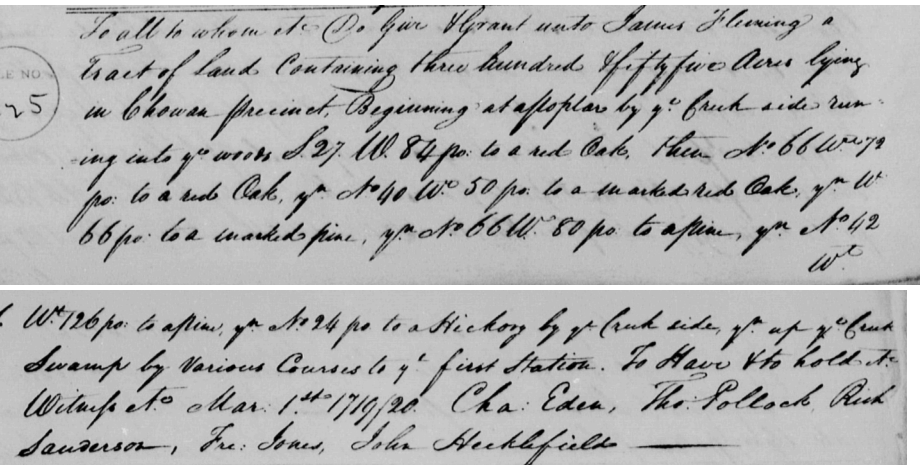 To all to whom &c Do Give & Grant unto James Fleming a
LE NO.
Tract of Land Containing three hundred & fifty five Acres lying
25
in Chowan precinct, Beginning at a poplar by ye Creek side run-
ing into ye woods S. 27. W. 84 po: to a red Oak, then No 66 Wt 72
po: to a red Oak, yn No 40 Wt 50 po: to a marked red Oak, yn W
66 po: to a marked pine, yn No 66 W. 80 po to a pine, yn No 42
Wt
Wt 126 po: to a pine, yn No 24 po to a Hickory by ye Creek side, yn up ye Creek
Swamp by various Courses to ye first Station. To Have & to hold &c
Witness &c Mar: 1st 1719/20. Cha: Eden, Tho: Pollock, Rich
Sanderson, Fre: Jones, John Hecklefield